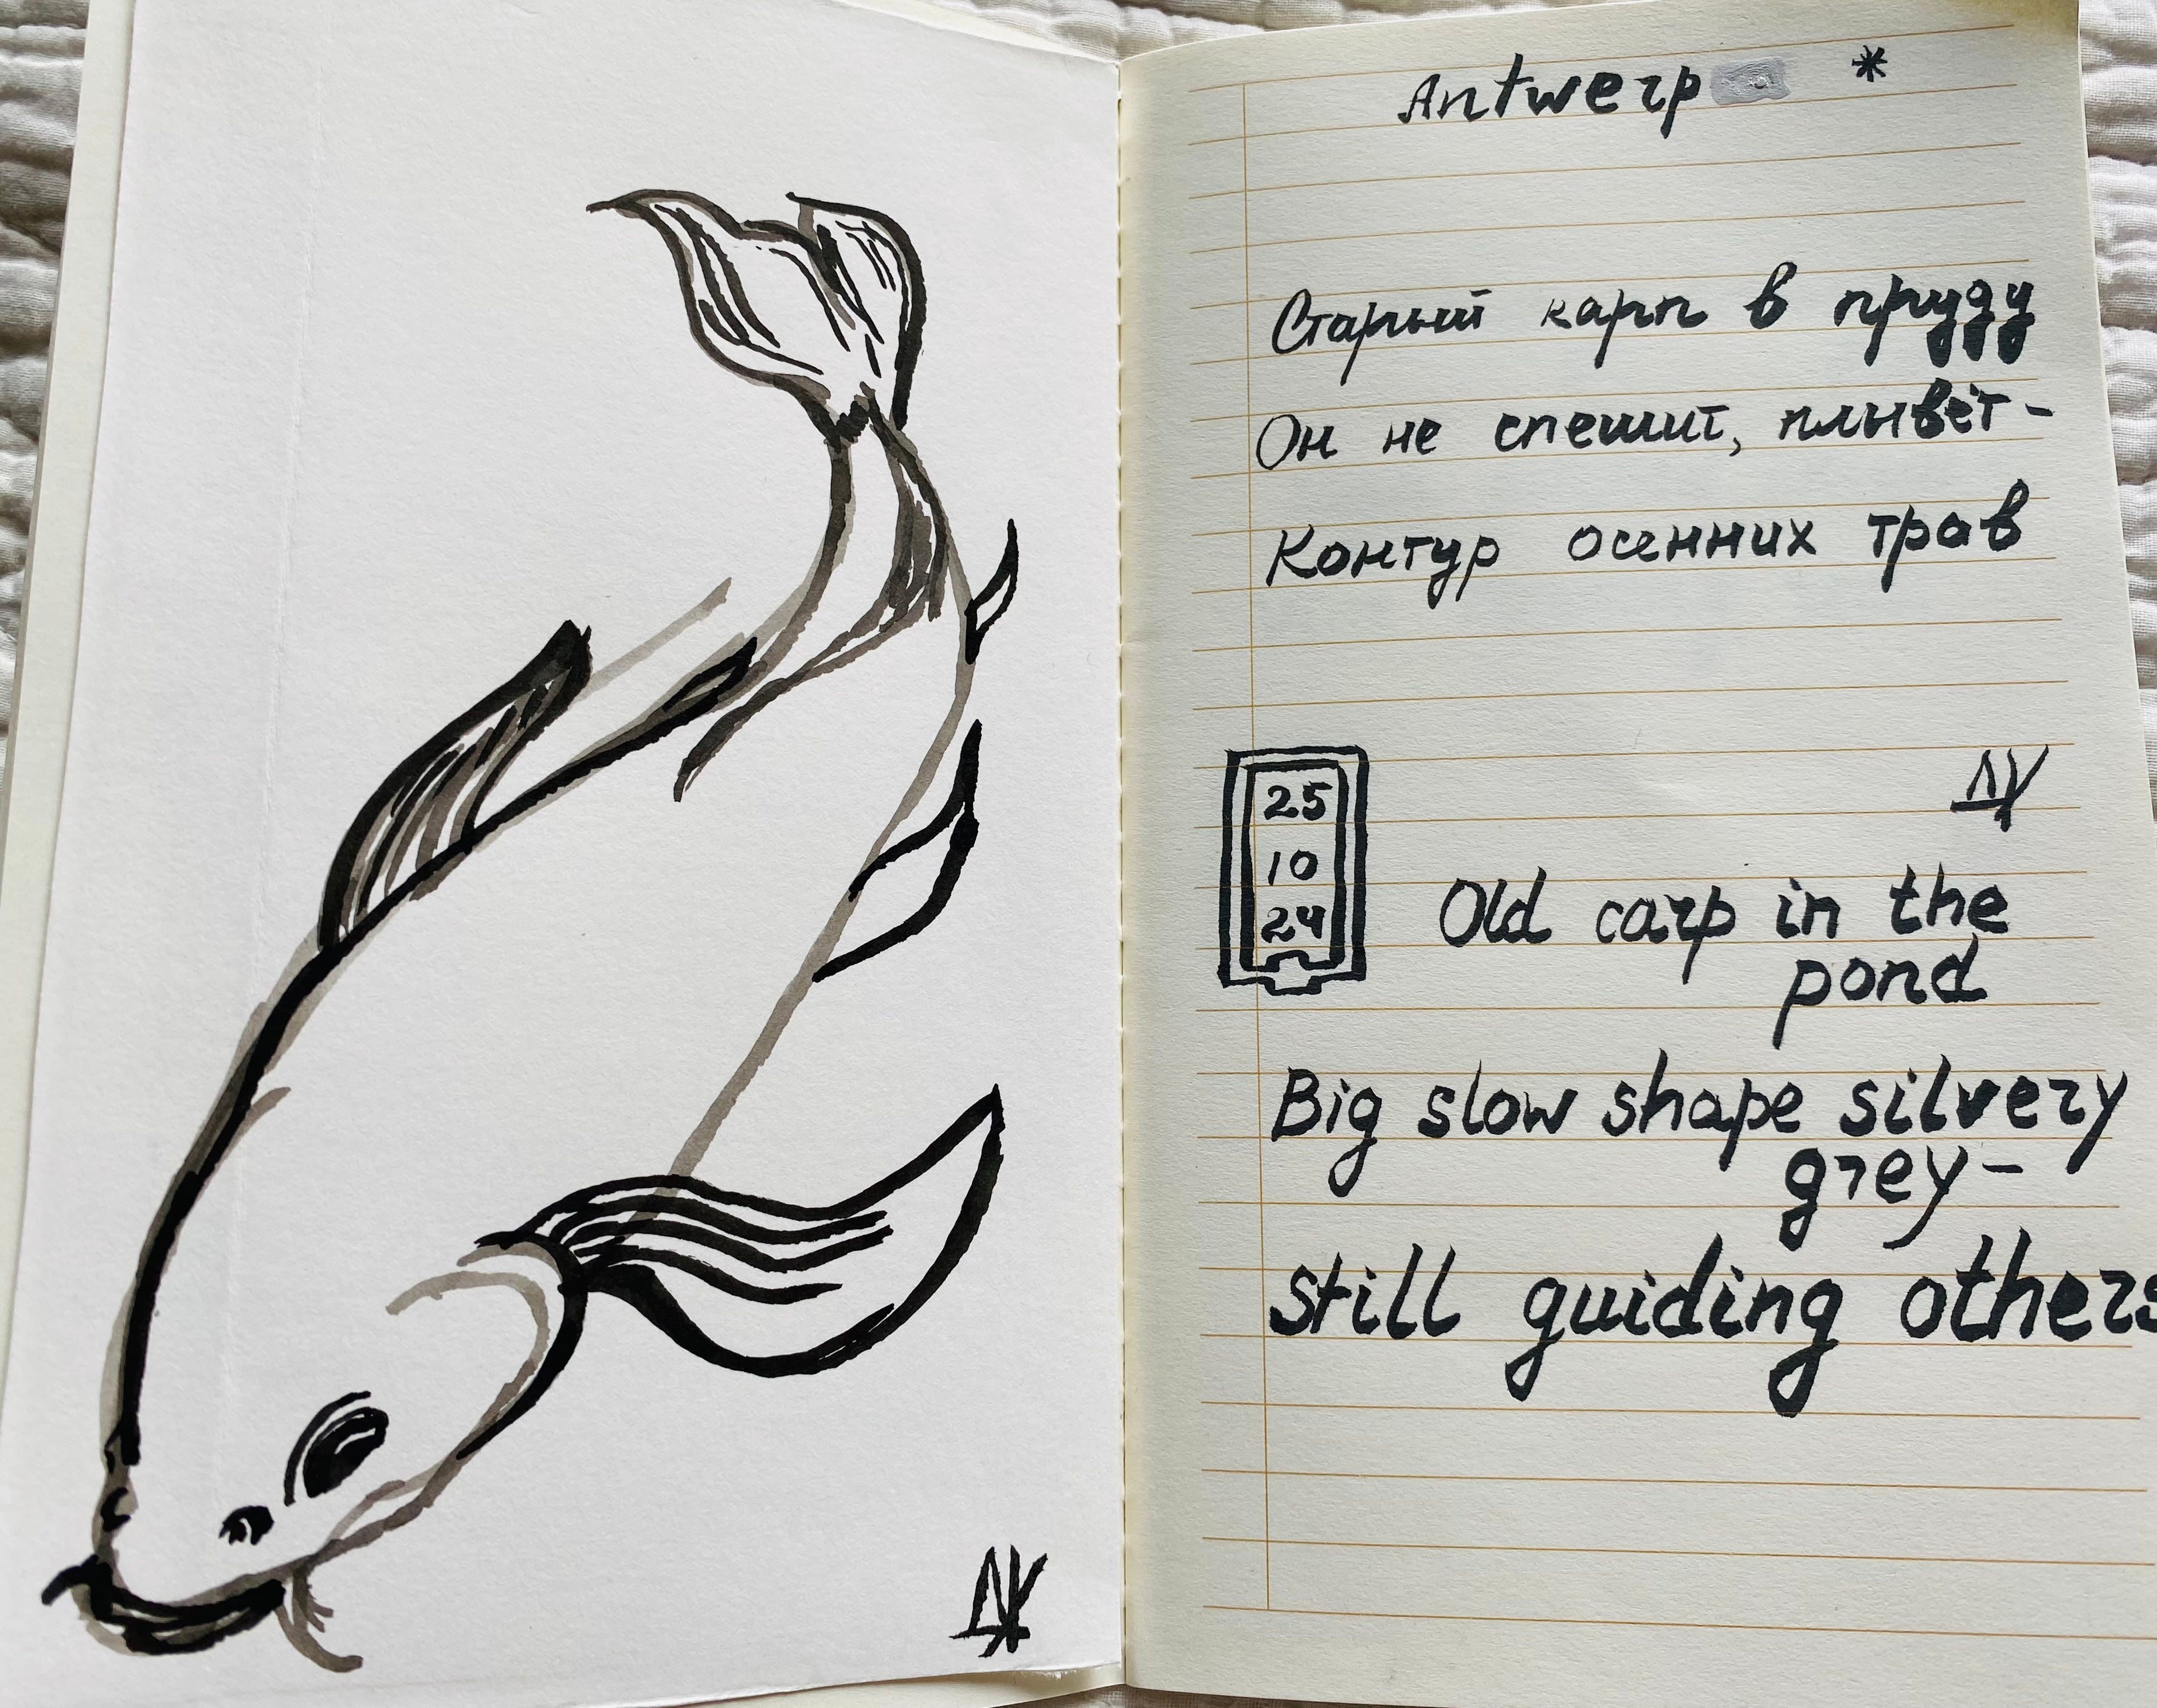 Antwerp *
Старый карп в пруду
Он не спешит, плывёт -
Контур осенних трав
25
10
24
Old carp in the
pond
Big slow shape silvery
grey -
still guiding others